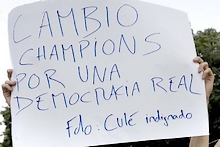 CAMBIO
CHAMPIONS
POR UNA
DEMOCRACIA REAL
Fdo. Culé indignado